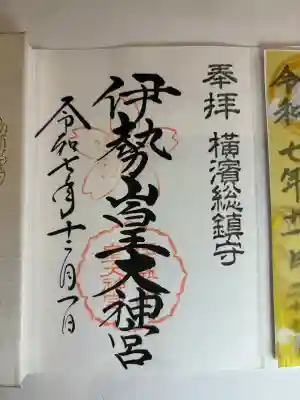 奉拝
横濱総鎮守
伊勢山皇大神宮
令和七年十二月一日
令和七年十二月